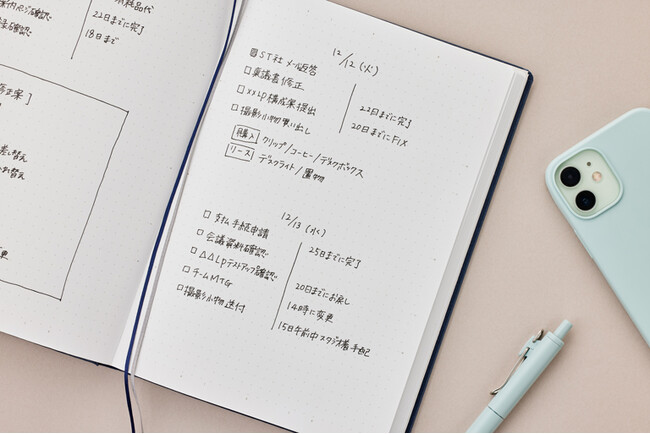 消耗品代
22日までに完了
18日まで
修正案]
差し替え
変更
12/12(火)
ST社メール返答
□稟議書修正
□××LP構成案提出
22日までに完了
□撮影小物買い出し
20日までにFIX
購入 クリップ/コーヒー/デスクボックス
リース デスクライト/置物
12/13(水)
□支払手続申請
25日までに完了
□会議 確認
□△△LPテストアップ確認
20日までにお戻し
□チームMTG
14時に変更
□撮影小物送付
15日午前中スタジオ様手配